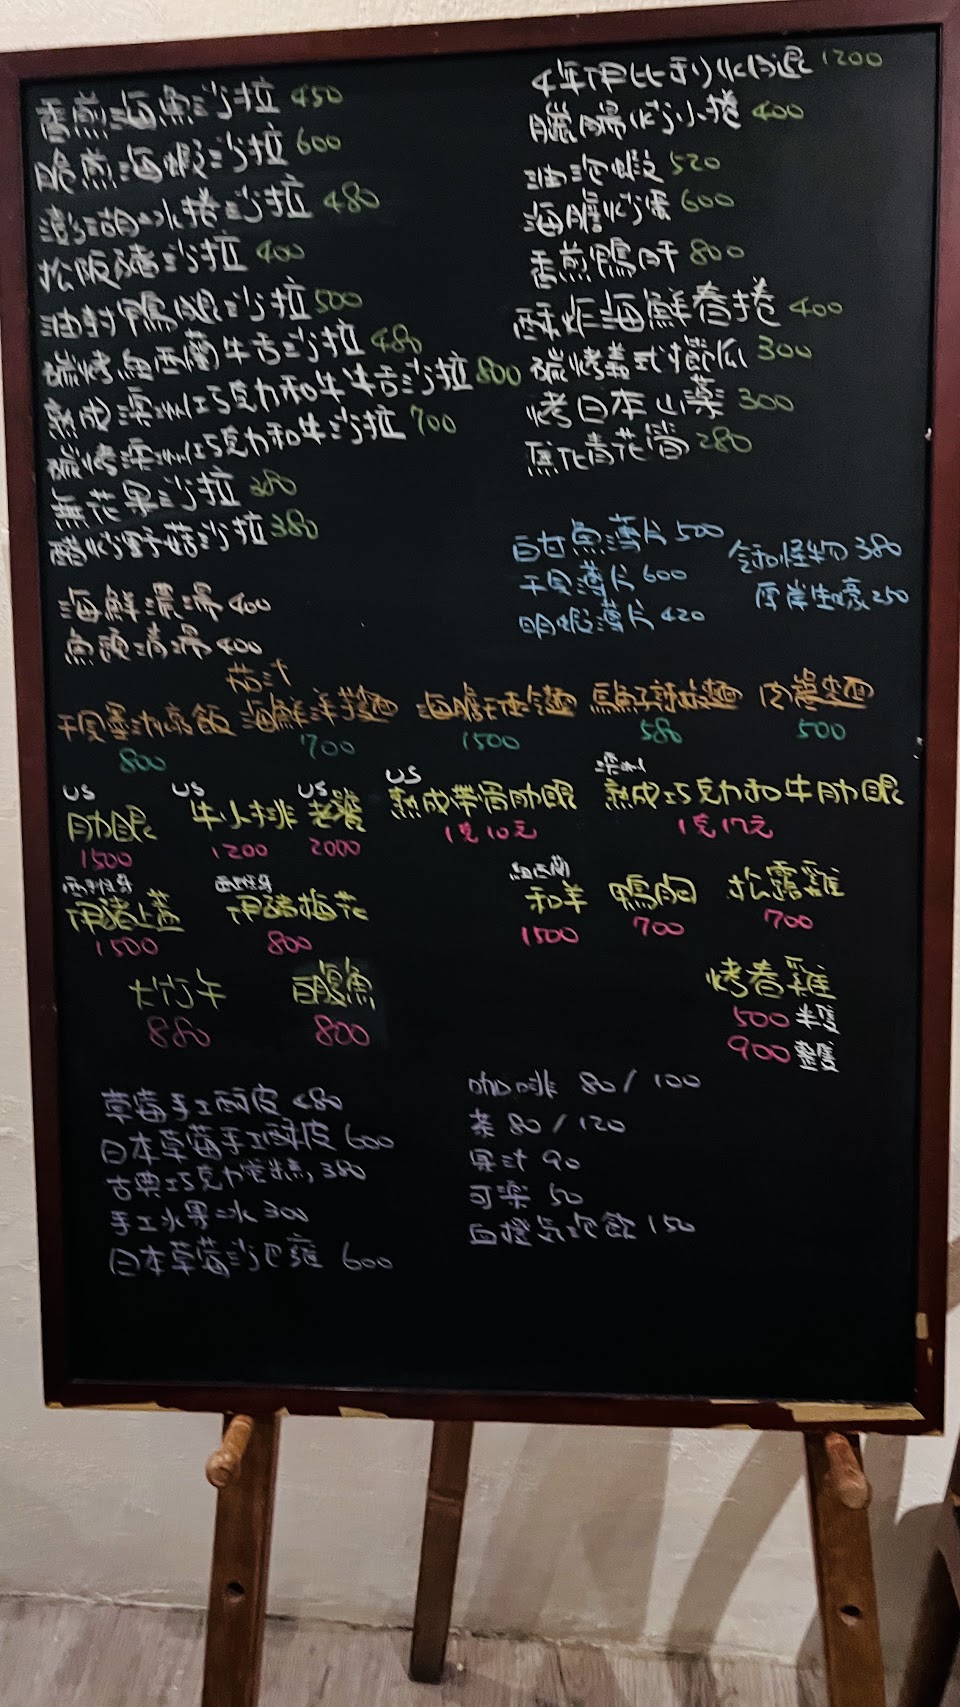 香煎海魚沙拉 450
脆煎海蝦沙拉 600
澎湖小卷沙拉 480
松阪豬沙拉 400
油封鴨腿沙拉 500
碳烤紐西蘭牛舌沙拉 480
熟成澳洲巧克力和牛牛舌沙拉 800
碳烤澳洲巧克力和牛沙拉 700
無花果沙拉 380
醋炒野菇沙拉 380
海鮮濃湯 400
魚頭清湯 400
4年伊比利火腿 1200
臘腸炒小捲 400
油泡蝦 520
海膽炒蛋 600
香煎鴨肝 800
酥炸海鮮春捲 400
碳烤義式櫛瓜 300
烤日本山藥 300
蕉化青花筍 280
白甘魚薄片 500
干貝薄片 600
明蝦薄片 420
令和怪物 380
厚岸生蠔 250
茄汁
干貝墨汁燉飯 海鮮洋麵 海膽天使冷麵 烏魚子辣椒麵 培根麵
800 700 1500 580 500
US US US US 澳洲
肋眼 牛小排 老饕 熟成帶骨肋眼 熟成巧克力和牛肋眼
1500 1200 2000 1克10元 1克17元
西班牙 西班牙 紐西蘭
伊豬上蓋 伊豬梅花 和羊 鴨胸 松露雞
1500 800 1500 700 700
大竹午 白腹魚 烤春雞
880 800 500 半隻
900 整隻
草莓手工酥皮 480
日本草莓手工酥皮 600
古典巧克力蛋糕 380
手工水果冰 300
日本草莓沙巴雍 600
咖啡 80/100
茶 80/120
果汁 90
可樂 50
血橙氣泡飲 150